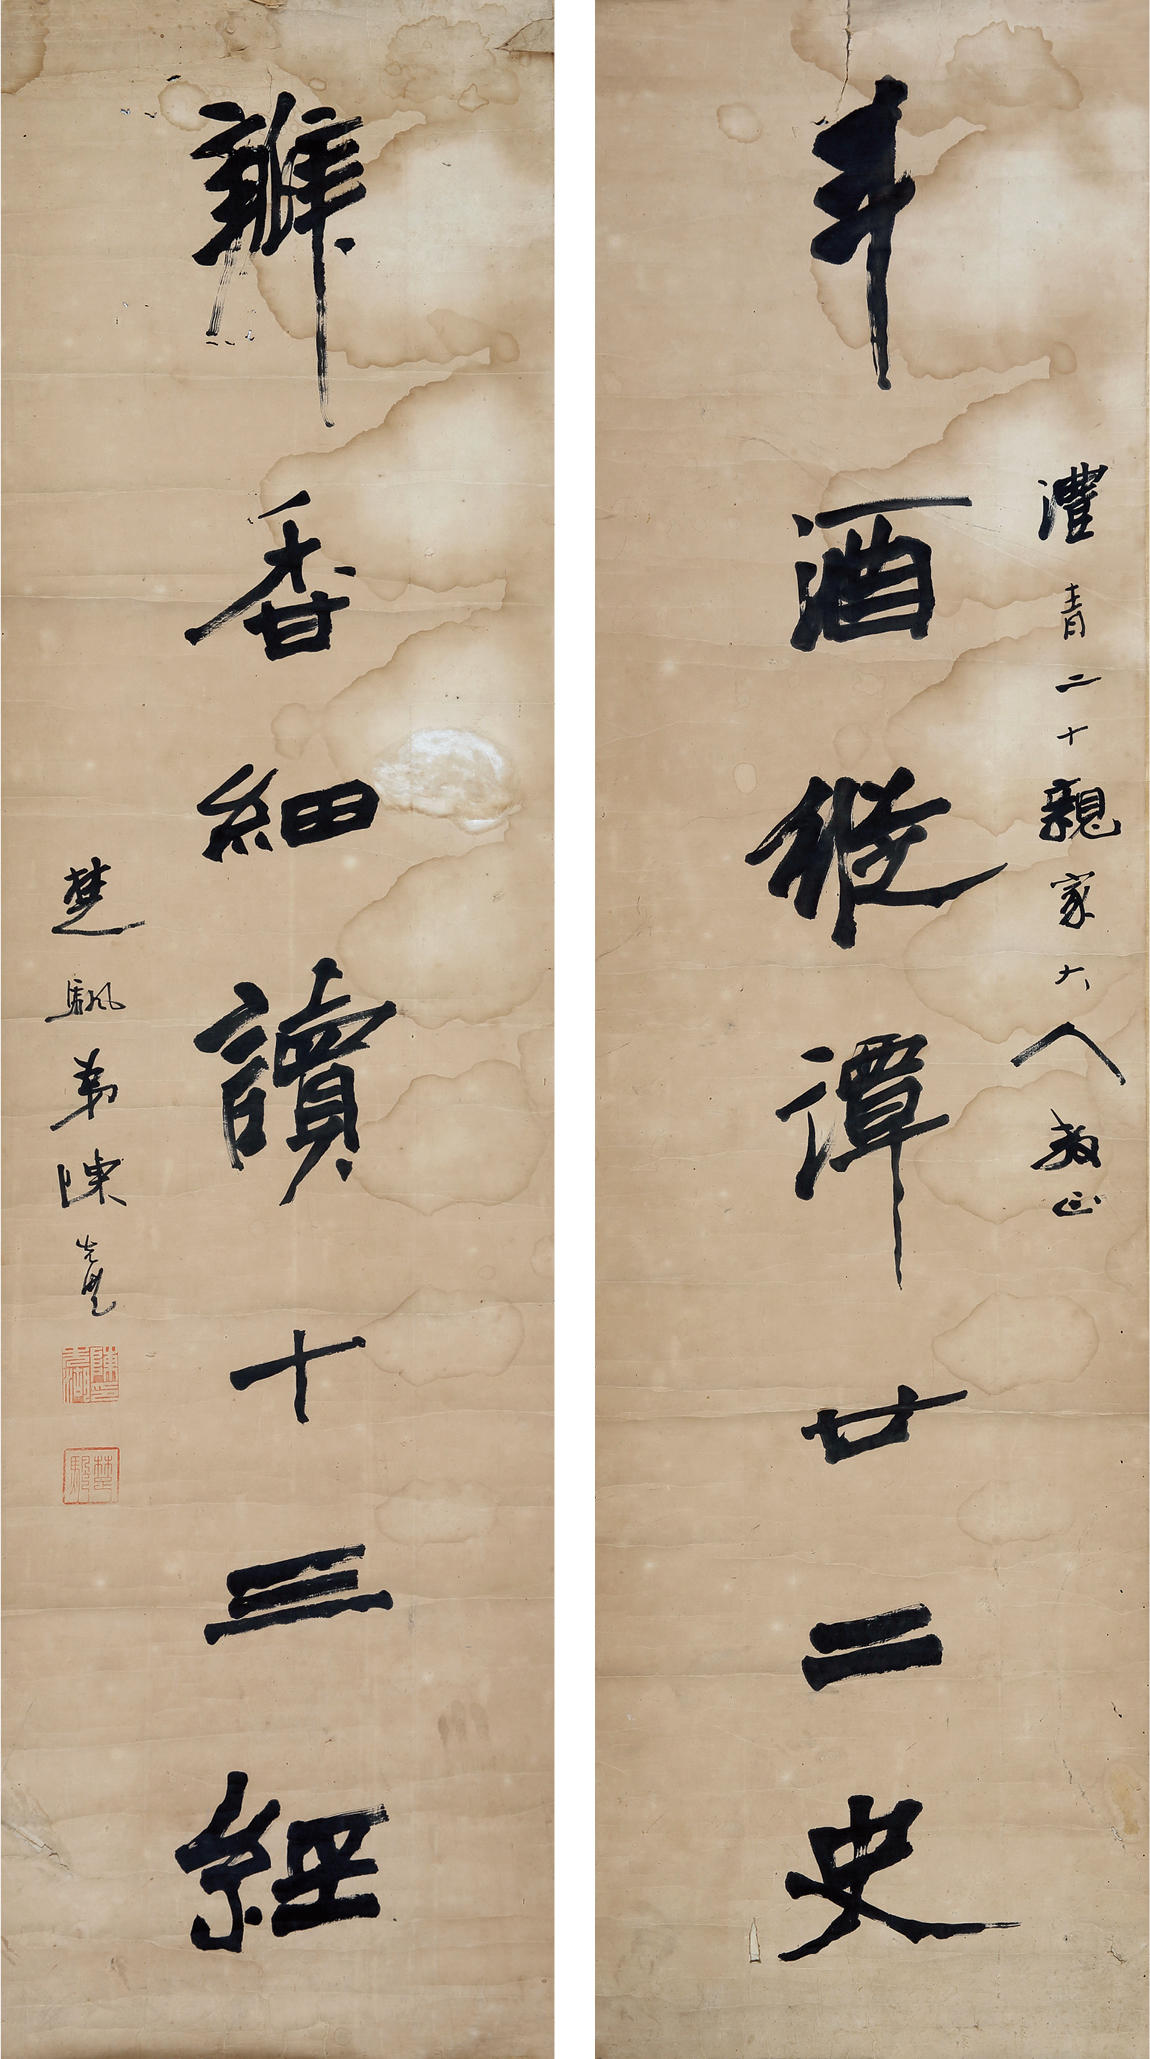 澧青二十親家大人教正
斗酒縱譚廿二史
瓣香細讀十三經
楚颿弟陳
楚颿